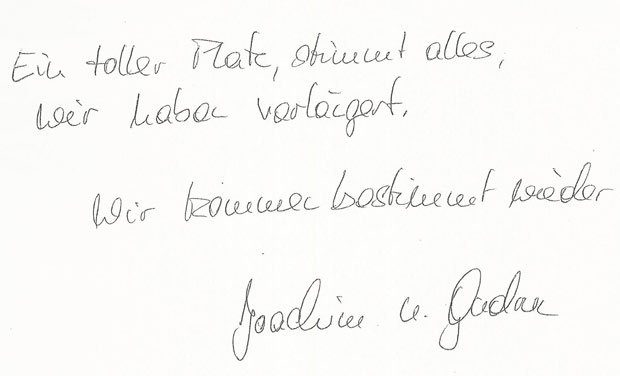 Ein toller Platz, stimmt alles,
wir haben verlängert.
Wir kommen bestimmt wieder
Joachim u. Gudrun